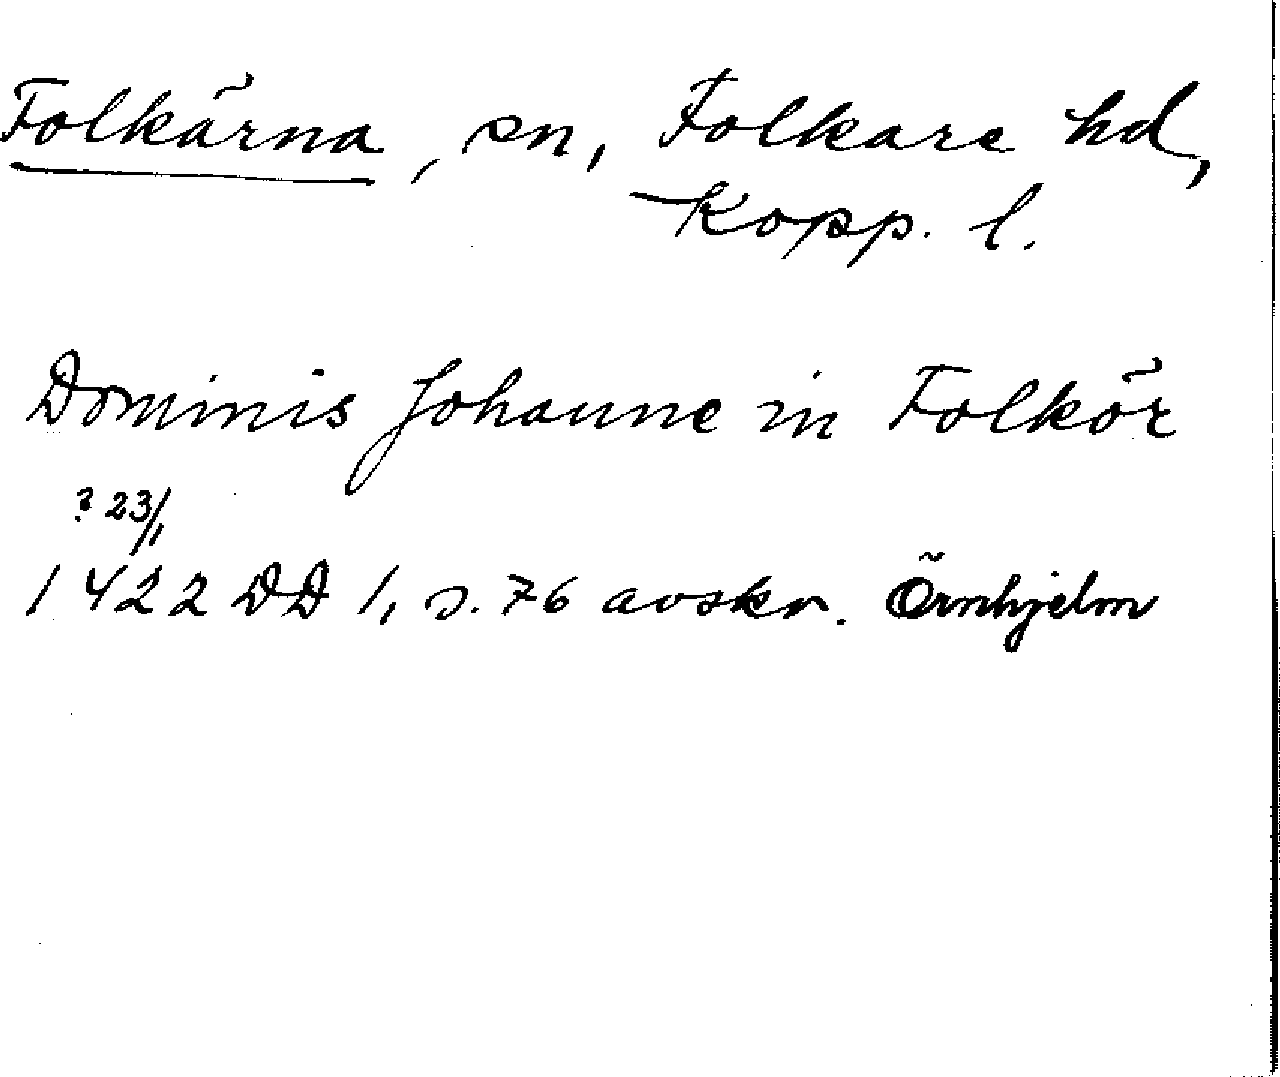 Folkärna, sn, Folkare hd,
Kopp. l.
Dominis Johanne in Folkör
? 23/1
1422 DD 1, s. 76 avskr. Örnhjelm